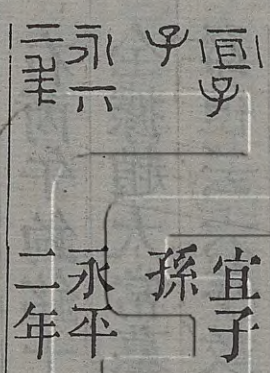 宜子
子
永
二年
宜子
孫
永平
二年